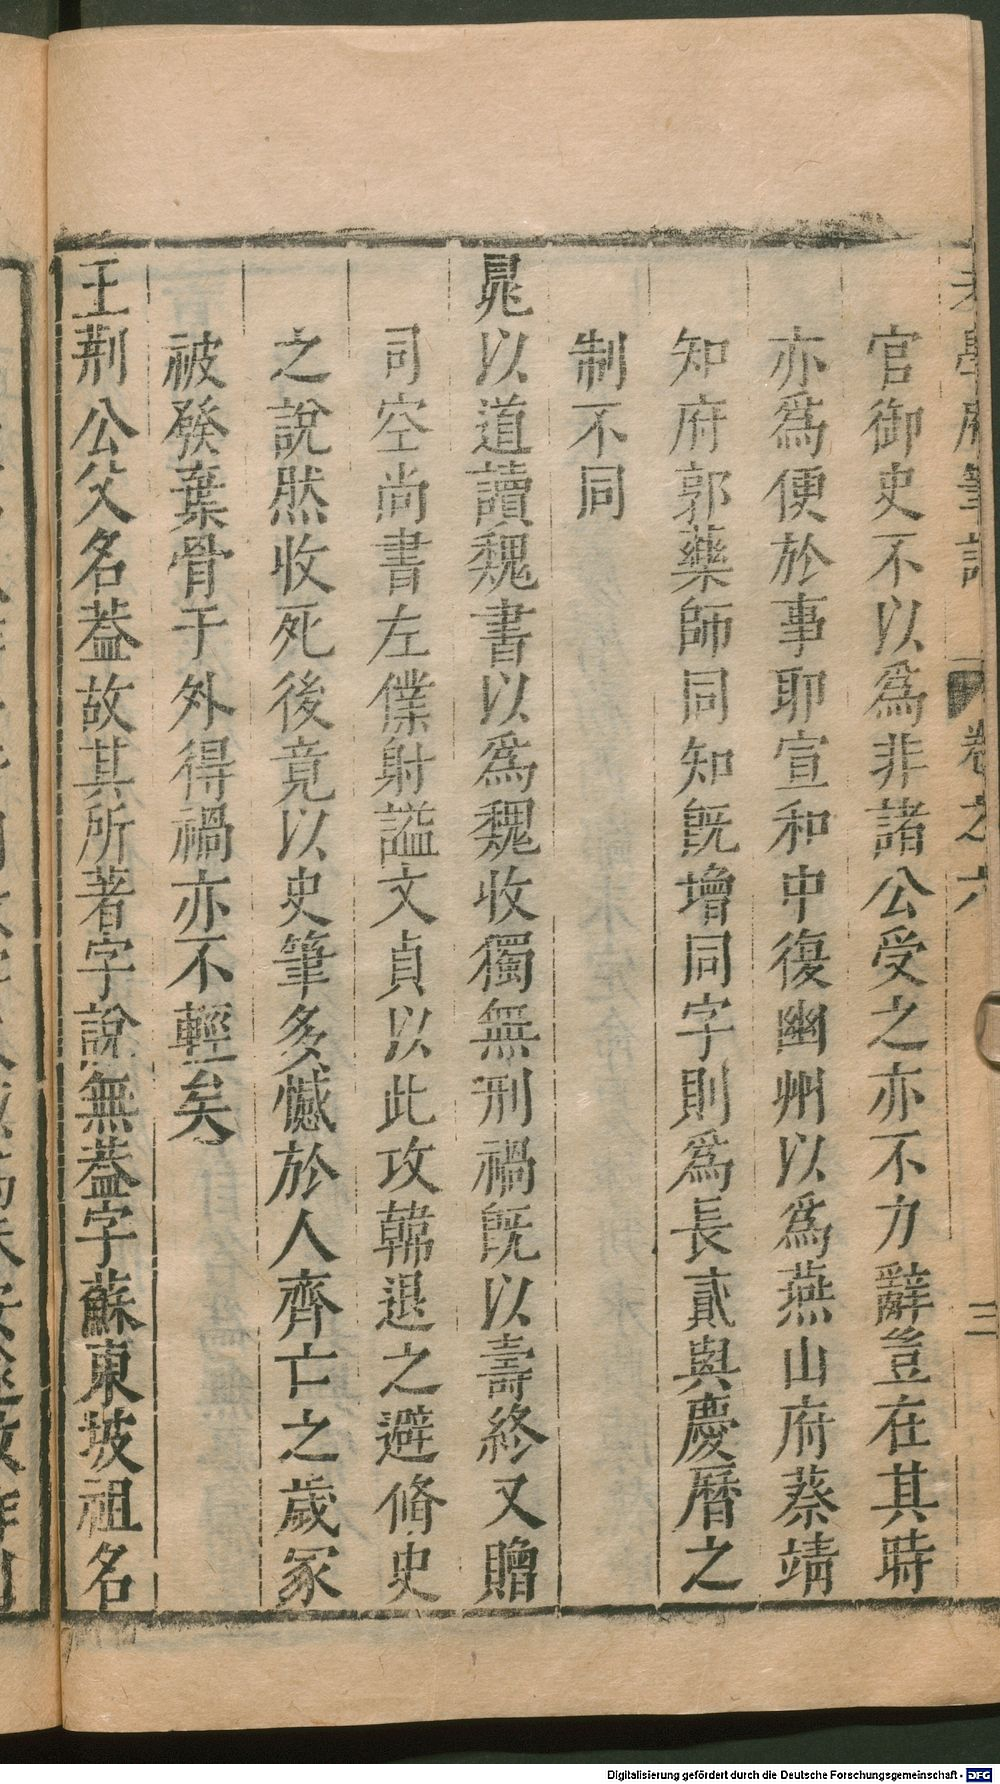 老學庵筆記 卷之六 三
官御史不以爲非諸公受之亦不力辭豈在其時
亦爲便於事耶宣和中復幽州以爲燕山府蔡靖
知府郭藥師同知旣增同字則爲長貳與慶曆之
制不同
晁以道讀魏書以爲魏收獨無刑禍旣以壽終又贈
司空尚書左僕射謚文貞以此攻韓退之避脩史
之說然收死後竟以史筆多憾於人齊亡之歲冢
被發棄骨于外得禍亦不輕矣
王荆公父名葢故其所著字說無葢字蘇東坡祖名
Digitalisierung gefördert durch die Deutsche Forschungsgemeinschaft - DFG